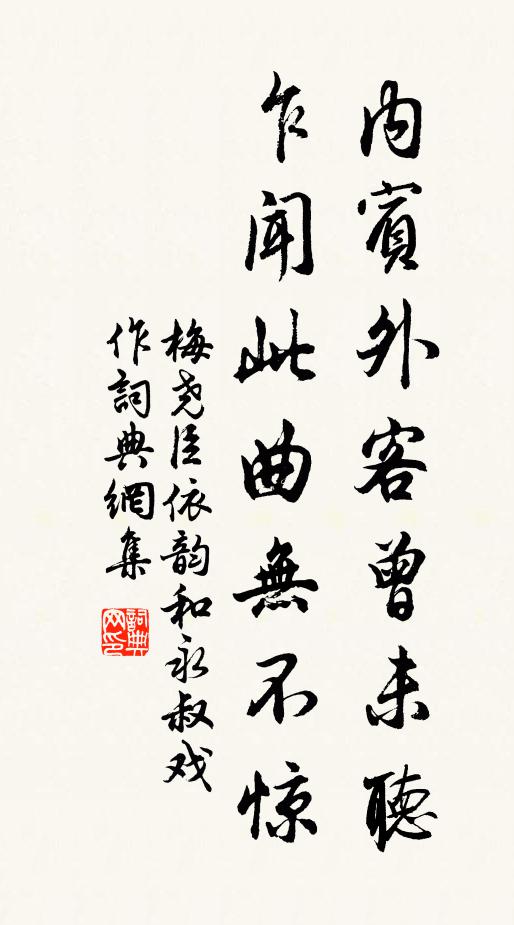 内賓外客曾未聽
乍聞此曲無不惊
梅尧臣依韵和永叔戏
作詞典網集
詞典
网印